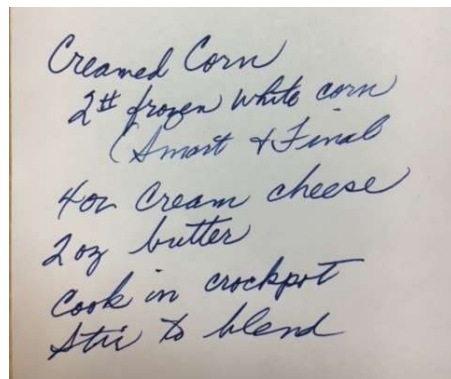 Creamed Corn
2# frozen white corn
(Smart & Final
4oz Cream cheese
2oz butter
Cook in crockpot
Stir to blend